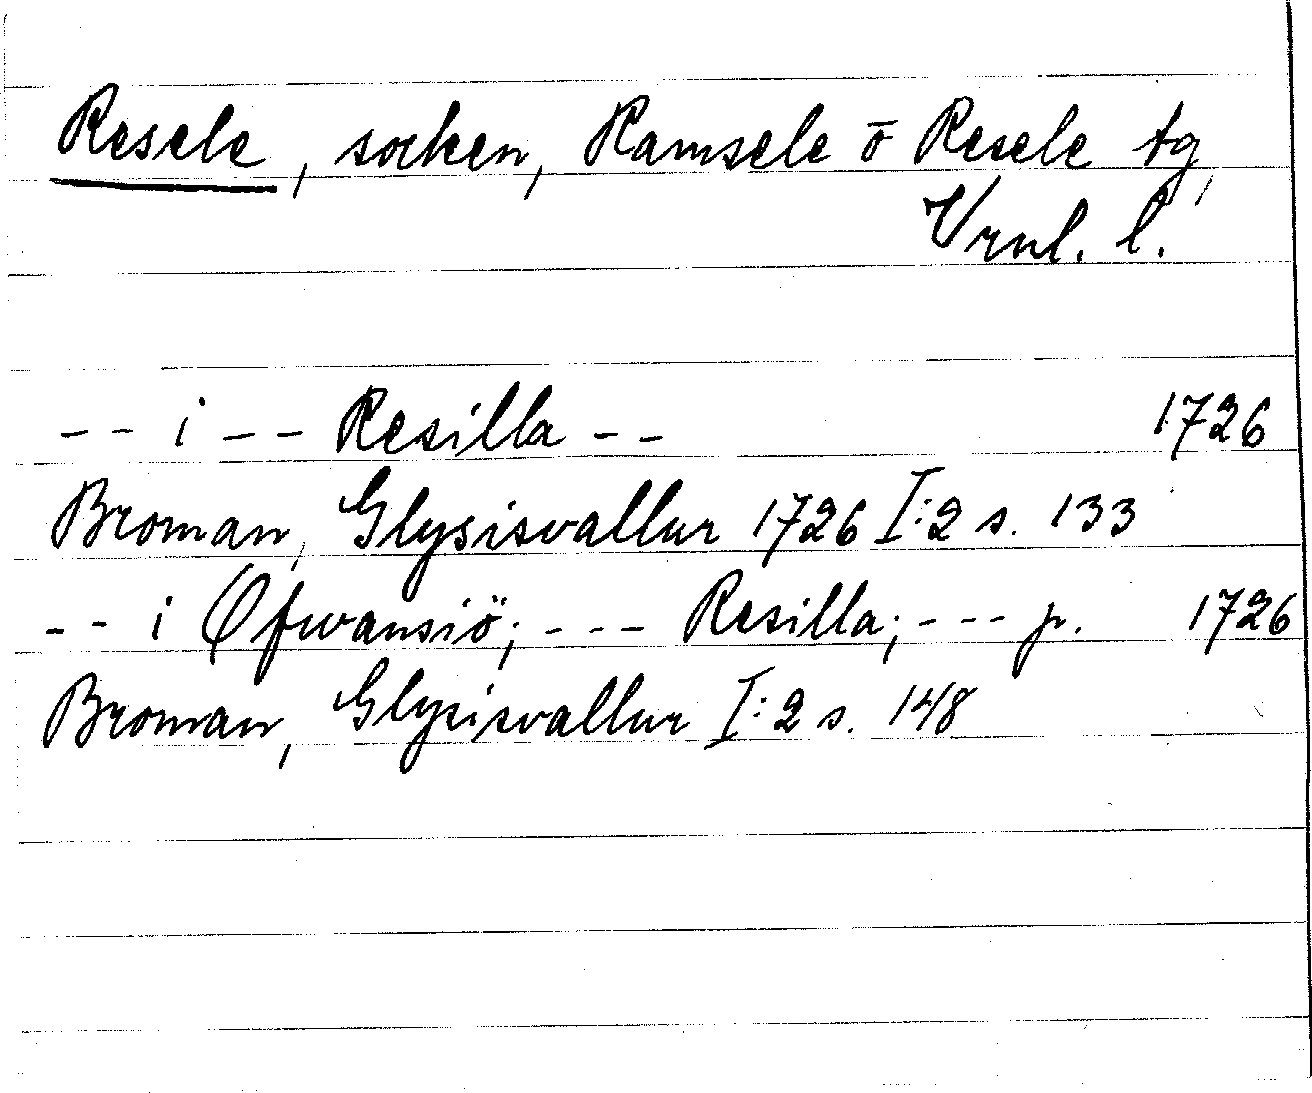 Resele, socken, Ramsele o Resele tg,
Vrnl. l.
-- i -- Resilla -- 1726
Broman, Glysisvallur 1726 I:2 s. 133
-- i Øfwansiö; --- Resilla; --- p. 1726
Broman, Glysisvallur I:2 s. 148